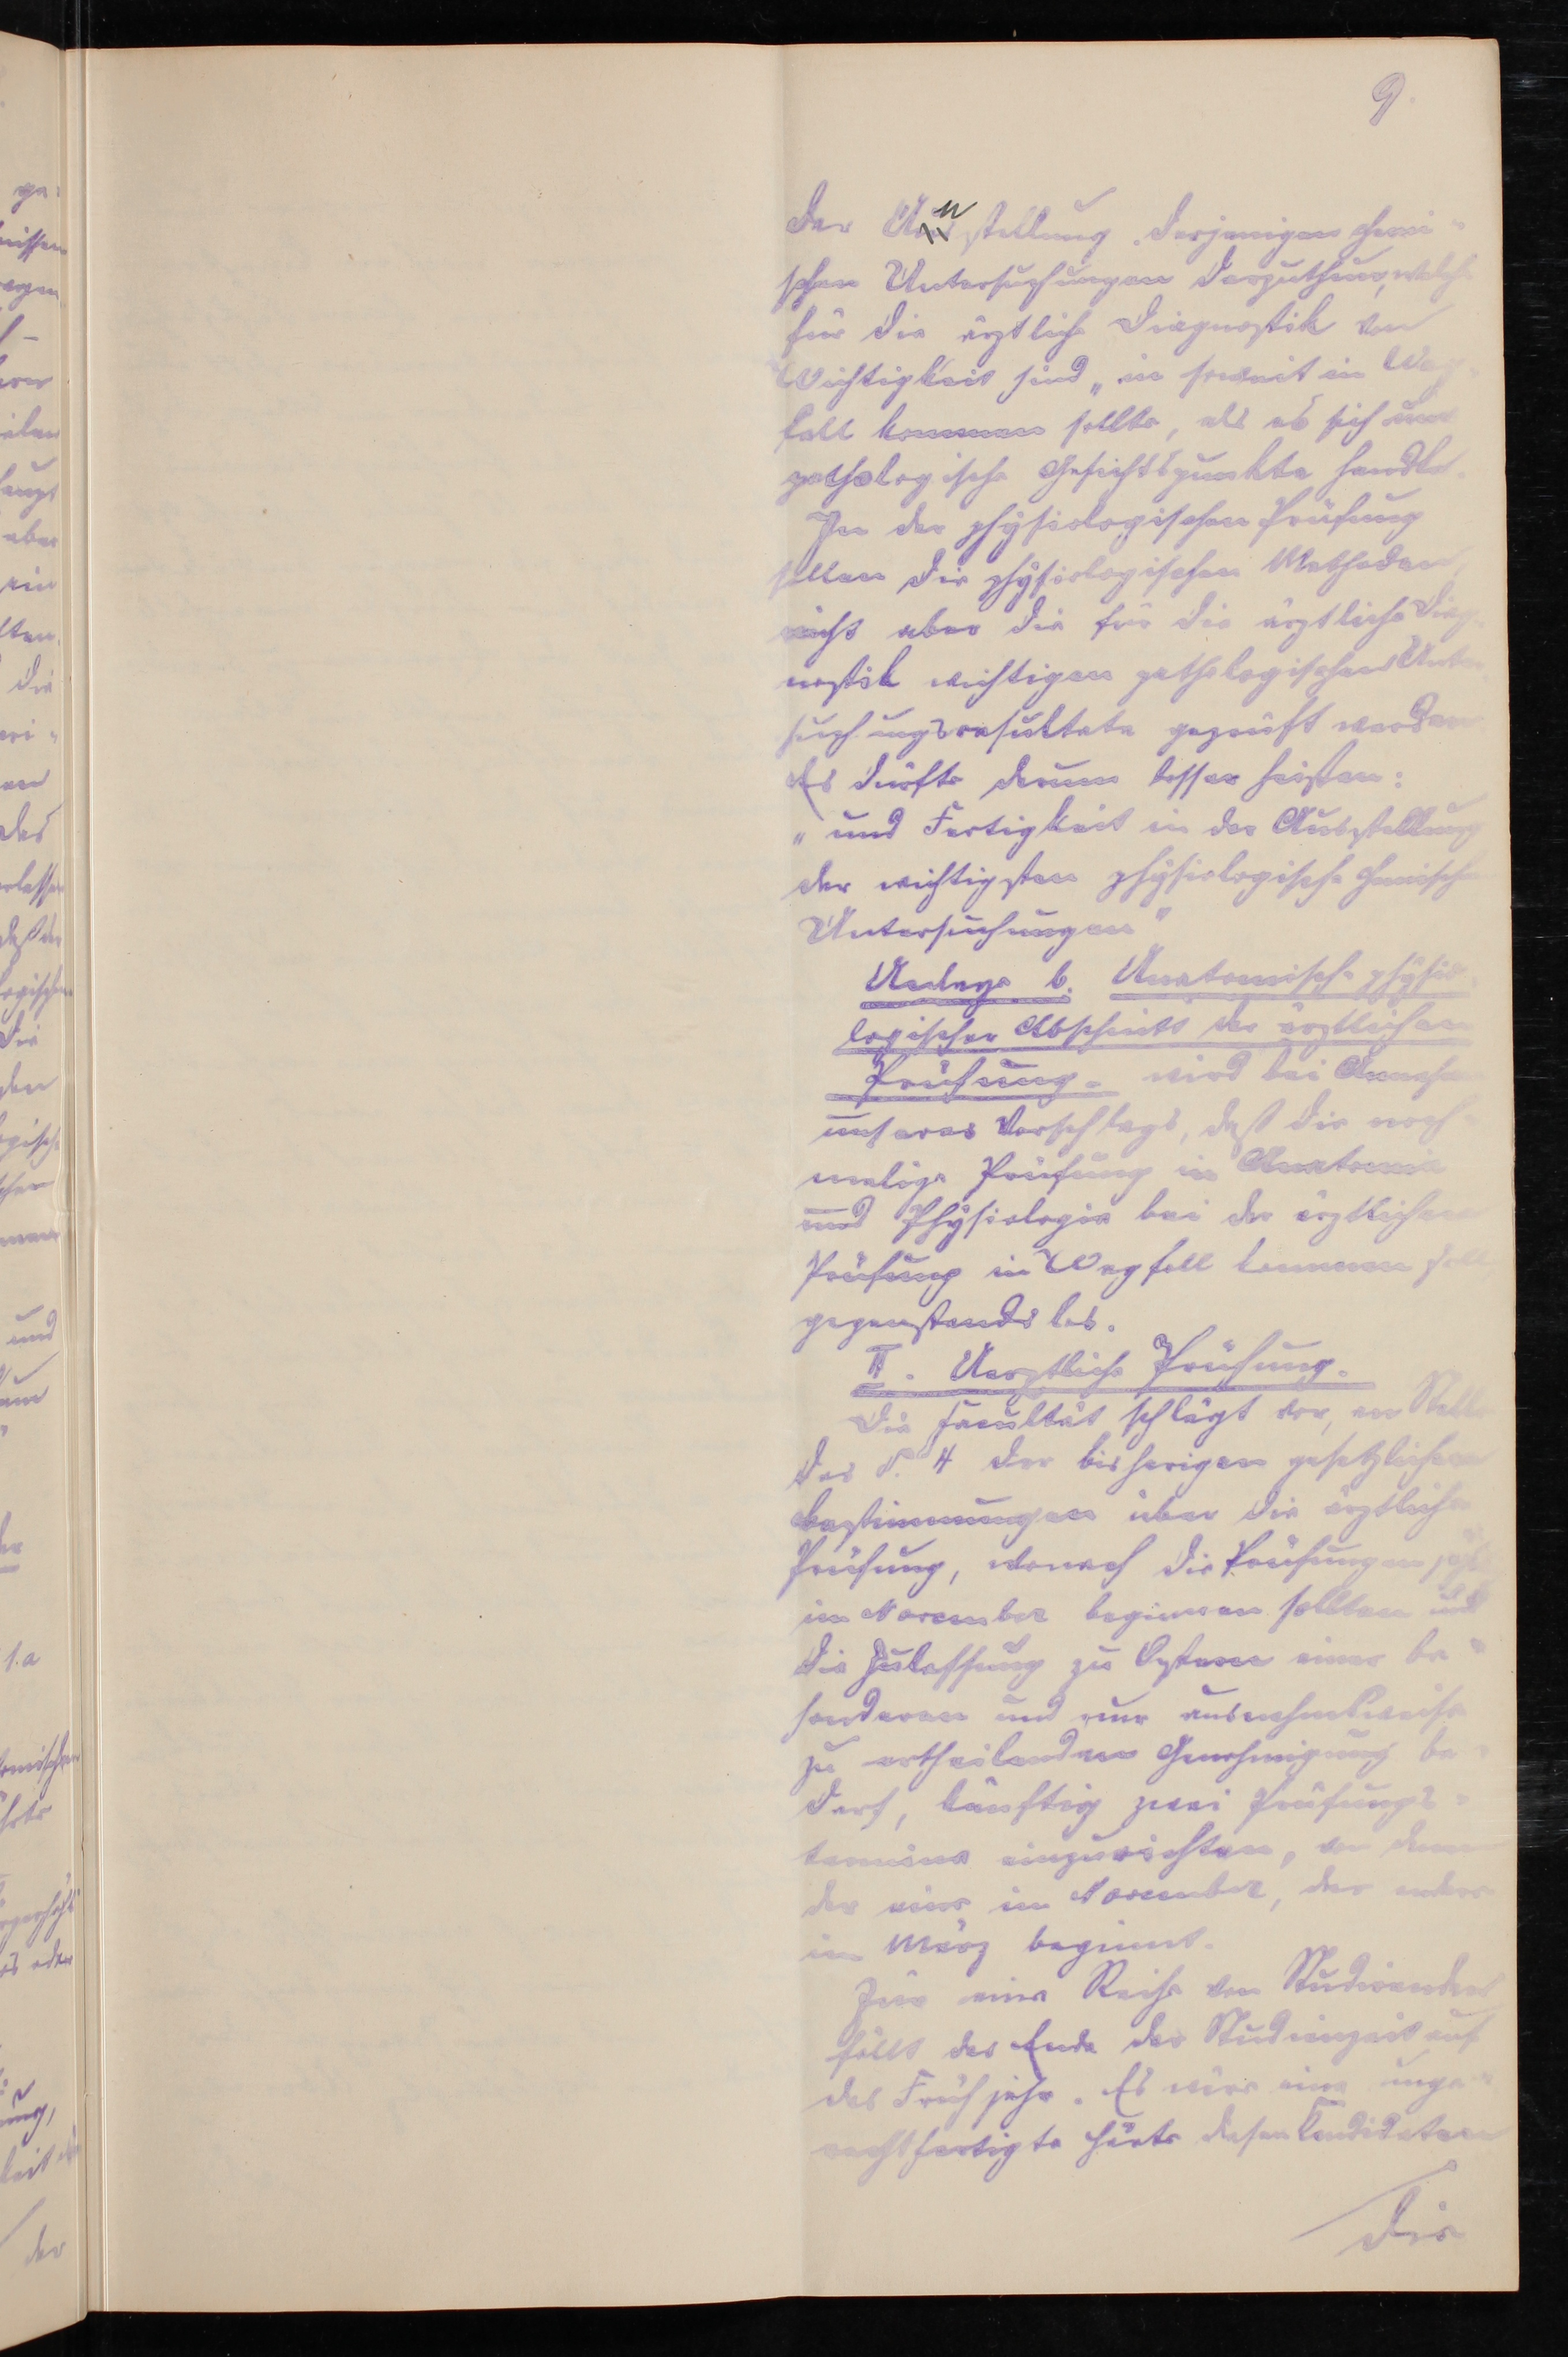 9.
der Anstellung derjenigen chemi-
schen Untersuchungen darzuthun, welche
für die ärztliche Diagnostik von
Wichtigkeit sind„ in soweit in Weg-
fall kommen sollte, als es sich um
pathologische Gesichtspunkte handle.
In der physiologischen Prüfung
sollen die physiologischen Methoden,
nicht aber die für die ärztliche Diag-
nostik wichtigen pathologischen Unter-
suchungsresultate geprüft werden
Es dürfte darum besser heißen:
„ und Fertigkeit in der Ausstellung
der wichtigsten physiologische chemischen
Untersuchungen"
Anlage b. Anatomische physio-
logischer Abschnitt der ärztlichen
Prüfung. wird bei Annahme
unseres Vorschlags, daß die noch-
malige Prüfung in Anatomie
und Physiologie bei der ärztlichen
Prüfung in Wegfall kommen soll
gegenstandslos.
II. Aerztliche Prüfung.
Die Facultät schlägt vor, an Stelle
des §. 4 der bisherigen gesetzlichen
bestimmungen über die ärztliche
Prüfung, wonach die Prüfungen
im November beginnen sollten und
die Zulassung zu Ostern einer be-
sonderen und nur ausnahmsweise
zu ertheilenden Genehmigung be-
darf, künftig zwei Prüfungs-
termine einzurichten, von denen
der eine im November, der andere
im März beginnt.
Für eine Reihe von Studirenden
fällt das Ende der Studienzeit auf
das Frühjahr. Es wäre eine unge-
rechtfertigte Härte diesen Candidaten
die